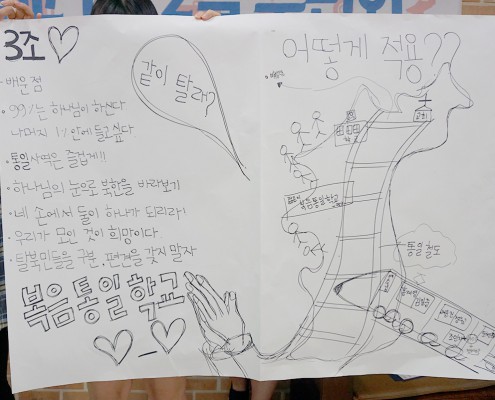 3조♡
· 배운 점
· 99%는 하나님이 하신다
나머지 1% 안에 들고싶다.
· 통일사역은 즐겁게!!
· 하나님의 눈으로 북한을 바라보기
· 네 손에서 둘이 하나가 되리라!
· 우리가 모인 것이 희망이다.
· 탈북민들을 구분, 편견을 갖지 말자
복음통일학교
같이 탈래?
어떻게 적용??
교회
학교
복음통일학교
통일 철도